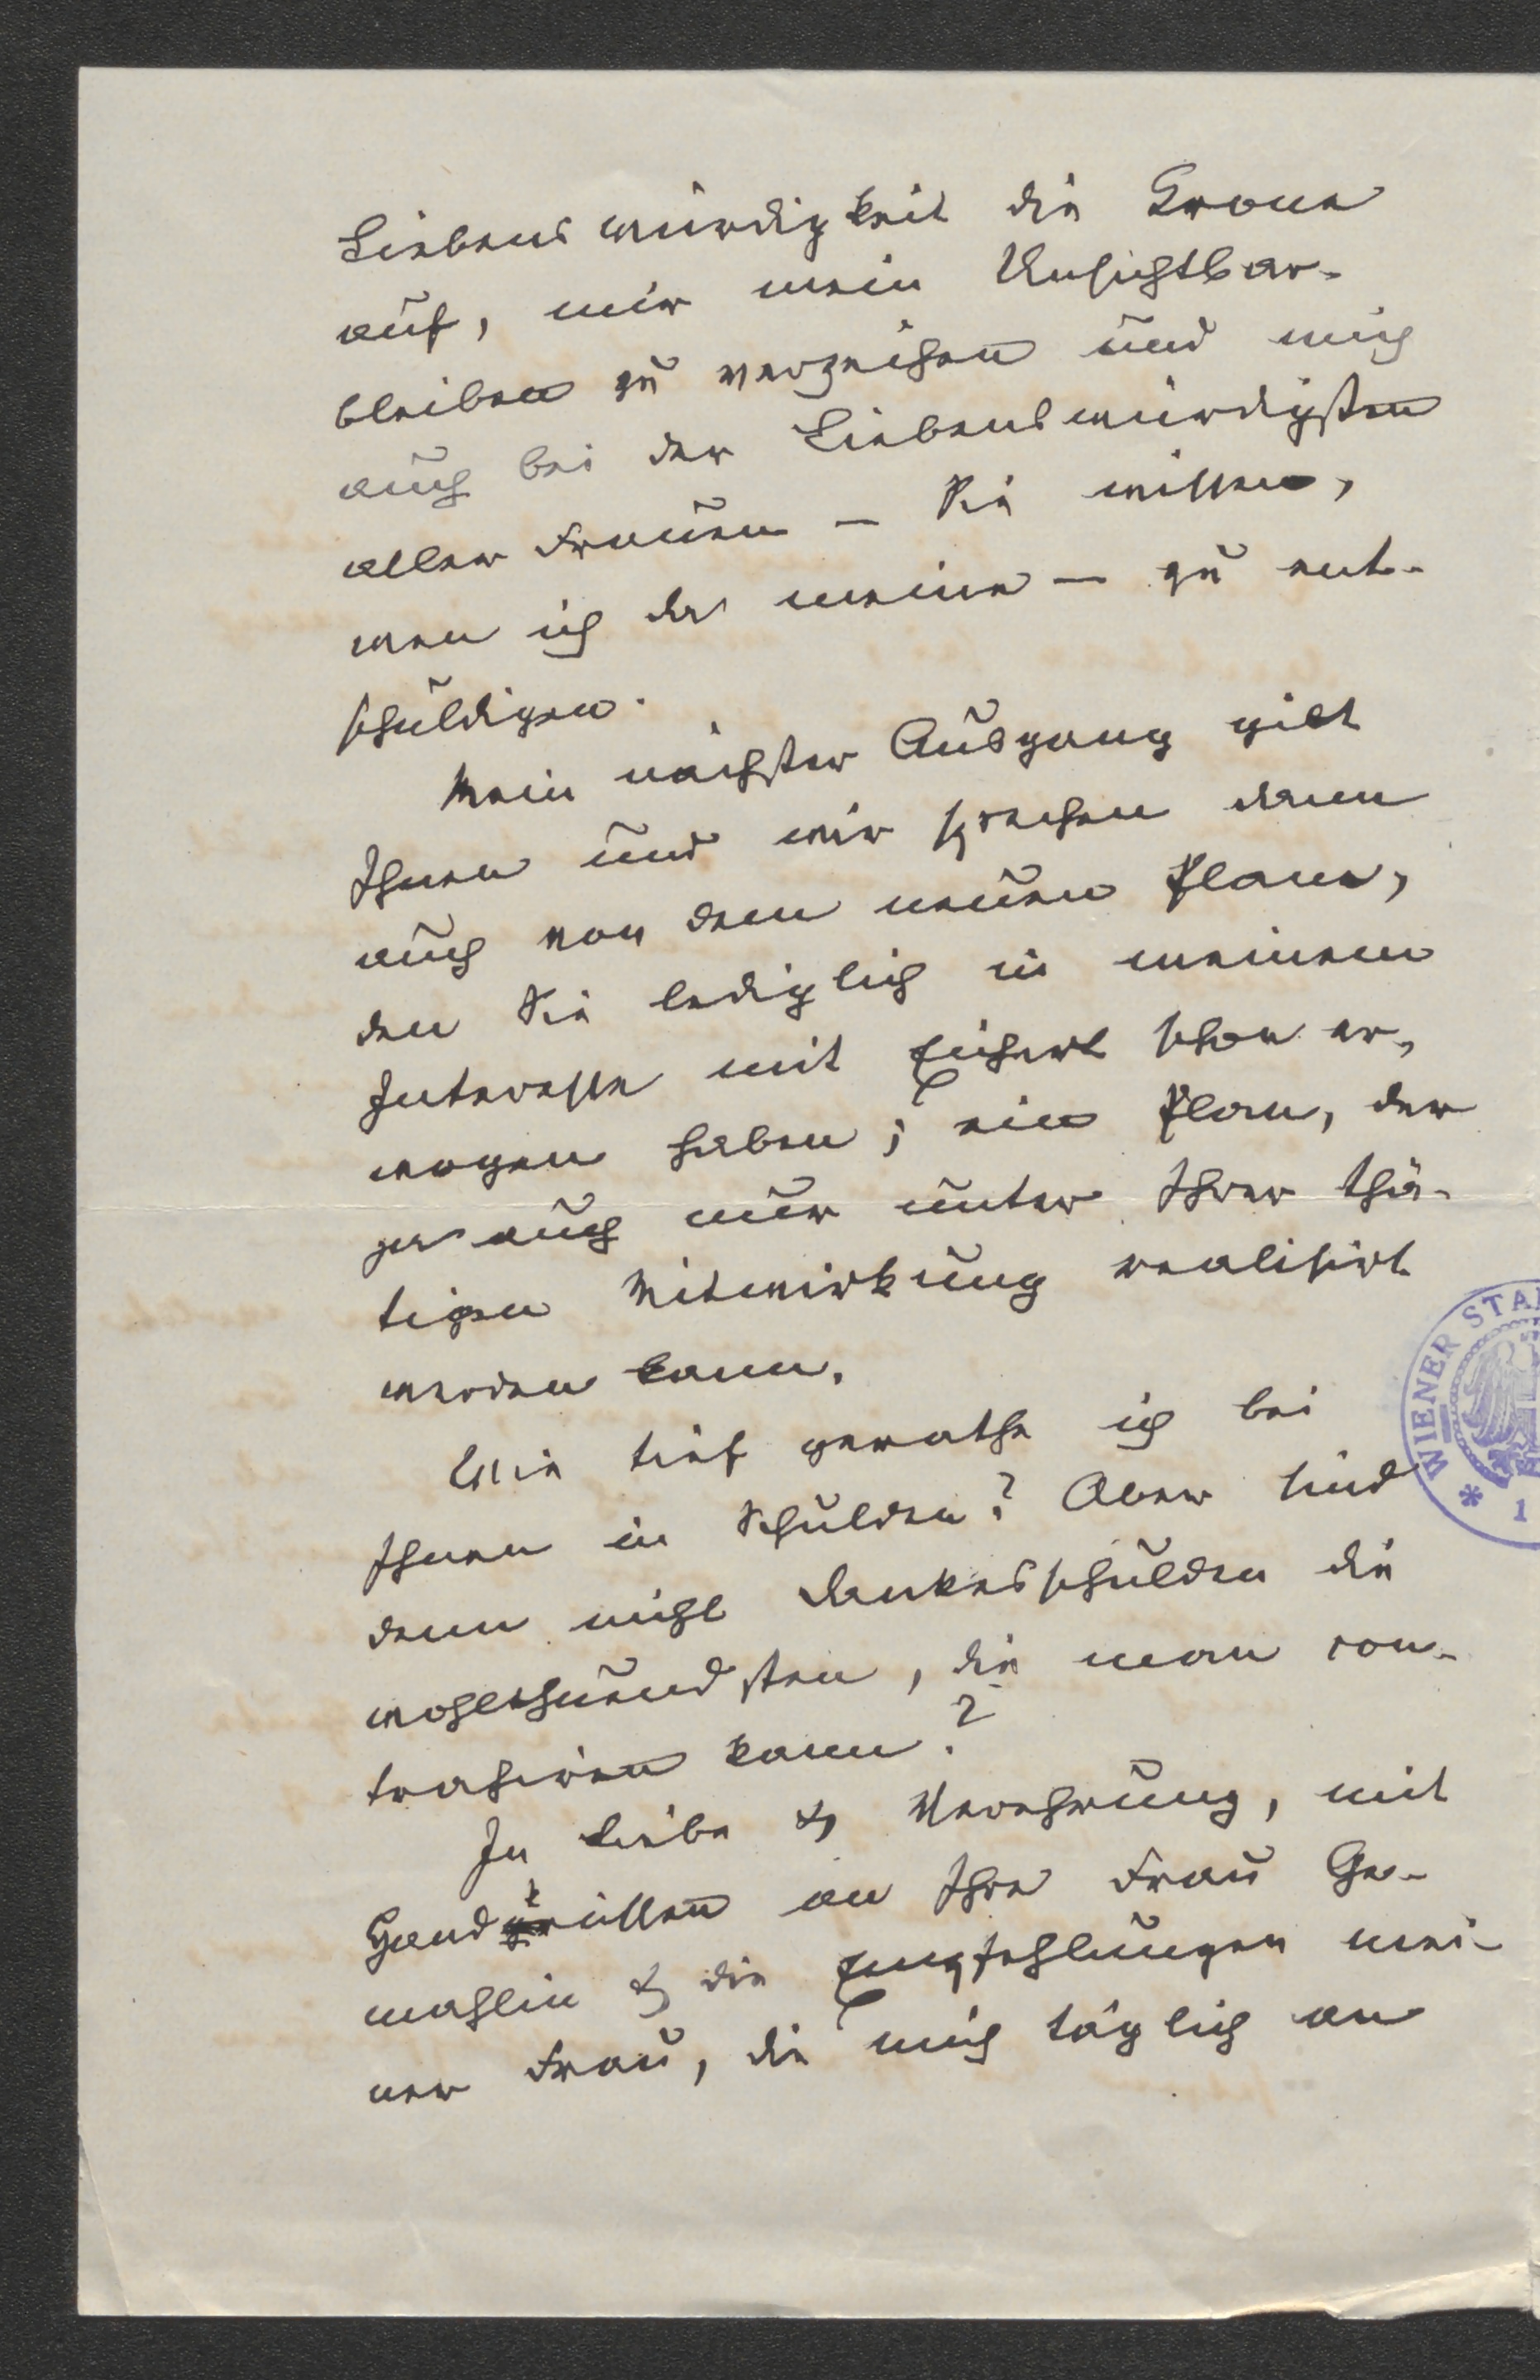 Liebenswürdigkeit die Krone
auf, mir mein Unsichtbar-
bleiben zu verzeihen und mich
auch bei der Liebenswürdigsten
aller Frauen — Sie wissen,
wen ich da meine — zu ent-
schuldigen.
Mein nächster Ausgang gilt
Ihnen und wir sprechen dann
auch von dem neuen Plane,
den Sie lediglich in meinem
Interesse mit schon er-
wogen haben; ein Plan, der
ja auch nur unter Ihrer thä-
tigen Mitwirkung realisirt
werden kann.
Wie tief gerathe ich bei
Ihnen in Schulden? Aber sind
denn nicht Dankesschulden die
wohlthuendsten, die man con-
trahiren kann?
In Liebe & Verehrung, mit
Handküssen an Ihre Frau Ge-
mahlin & die Empfehlungen mei-
ner Frau, die mich täglich an
WIENER STA
* 1